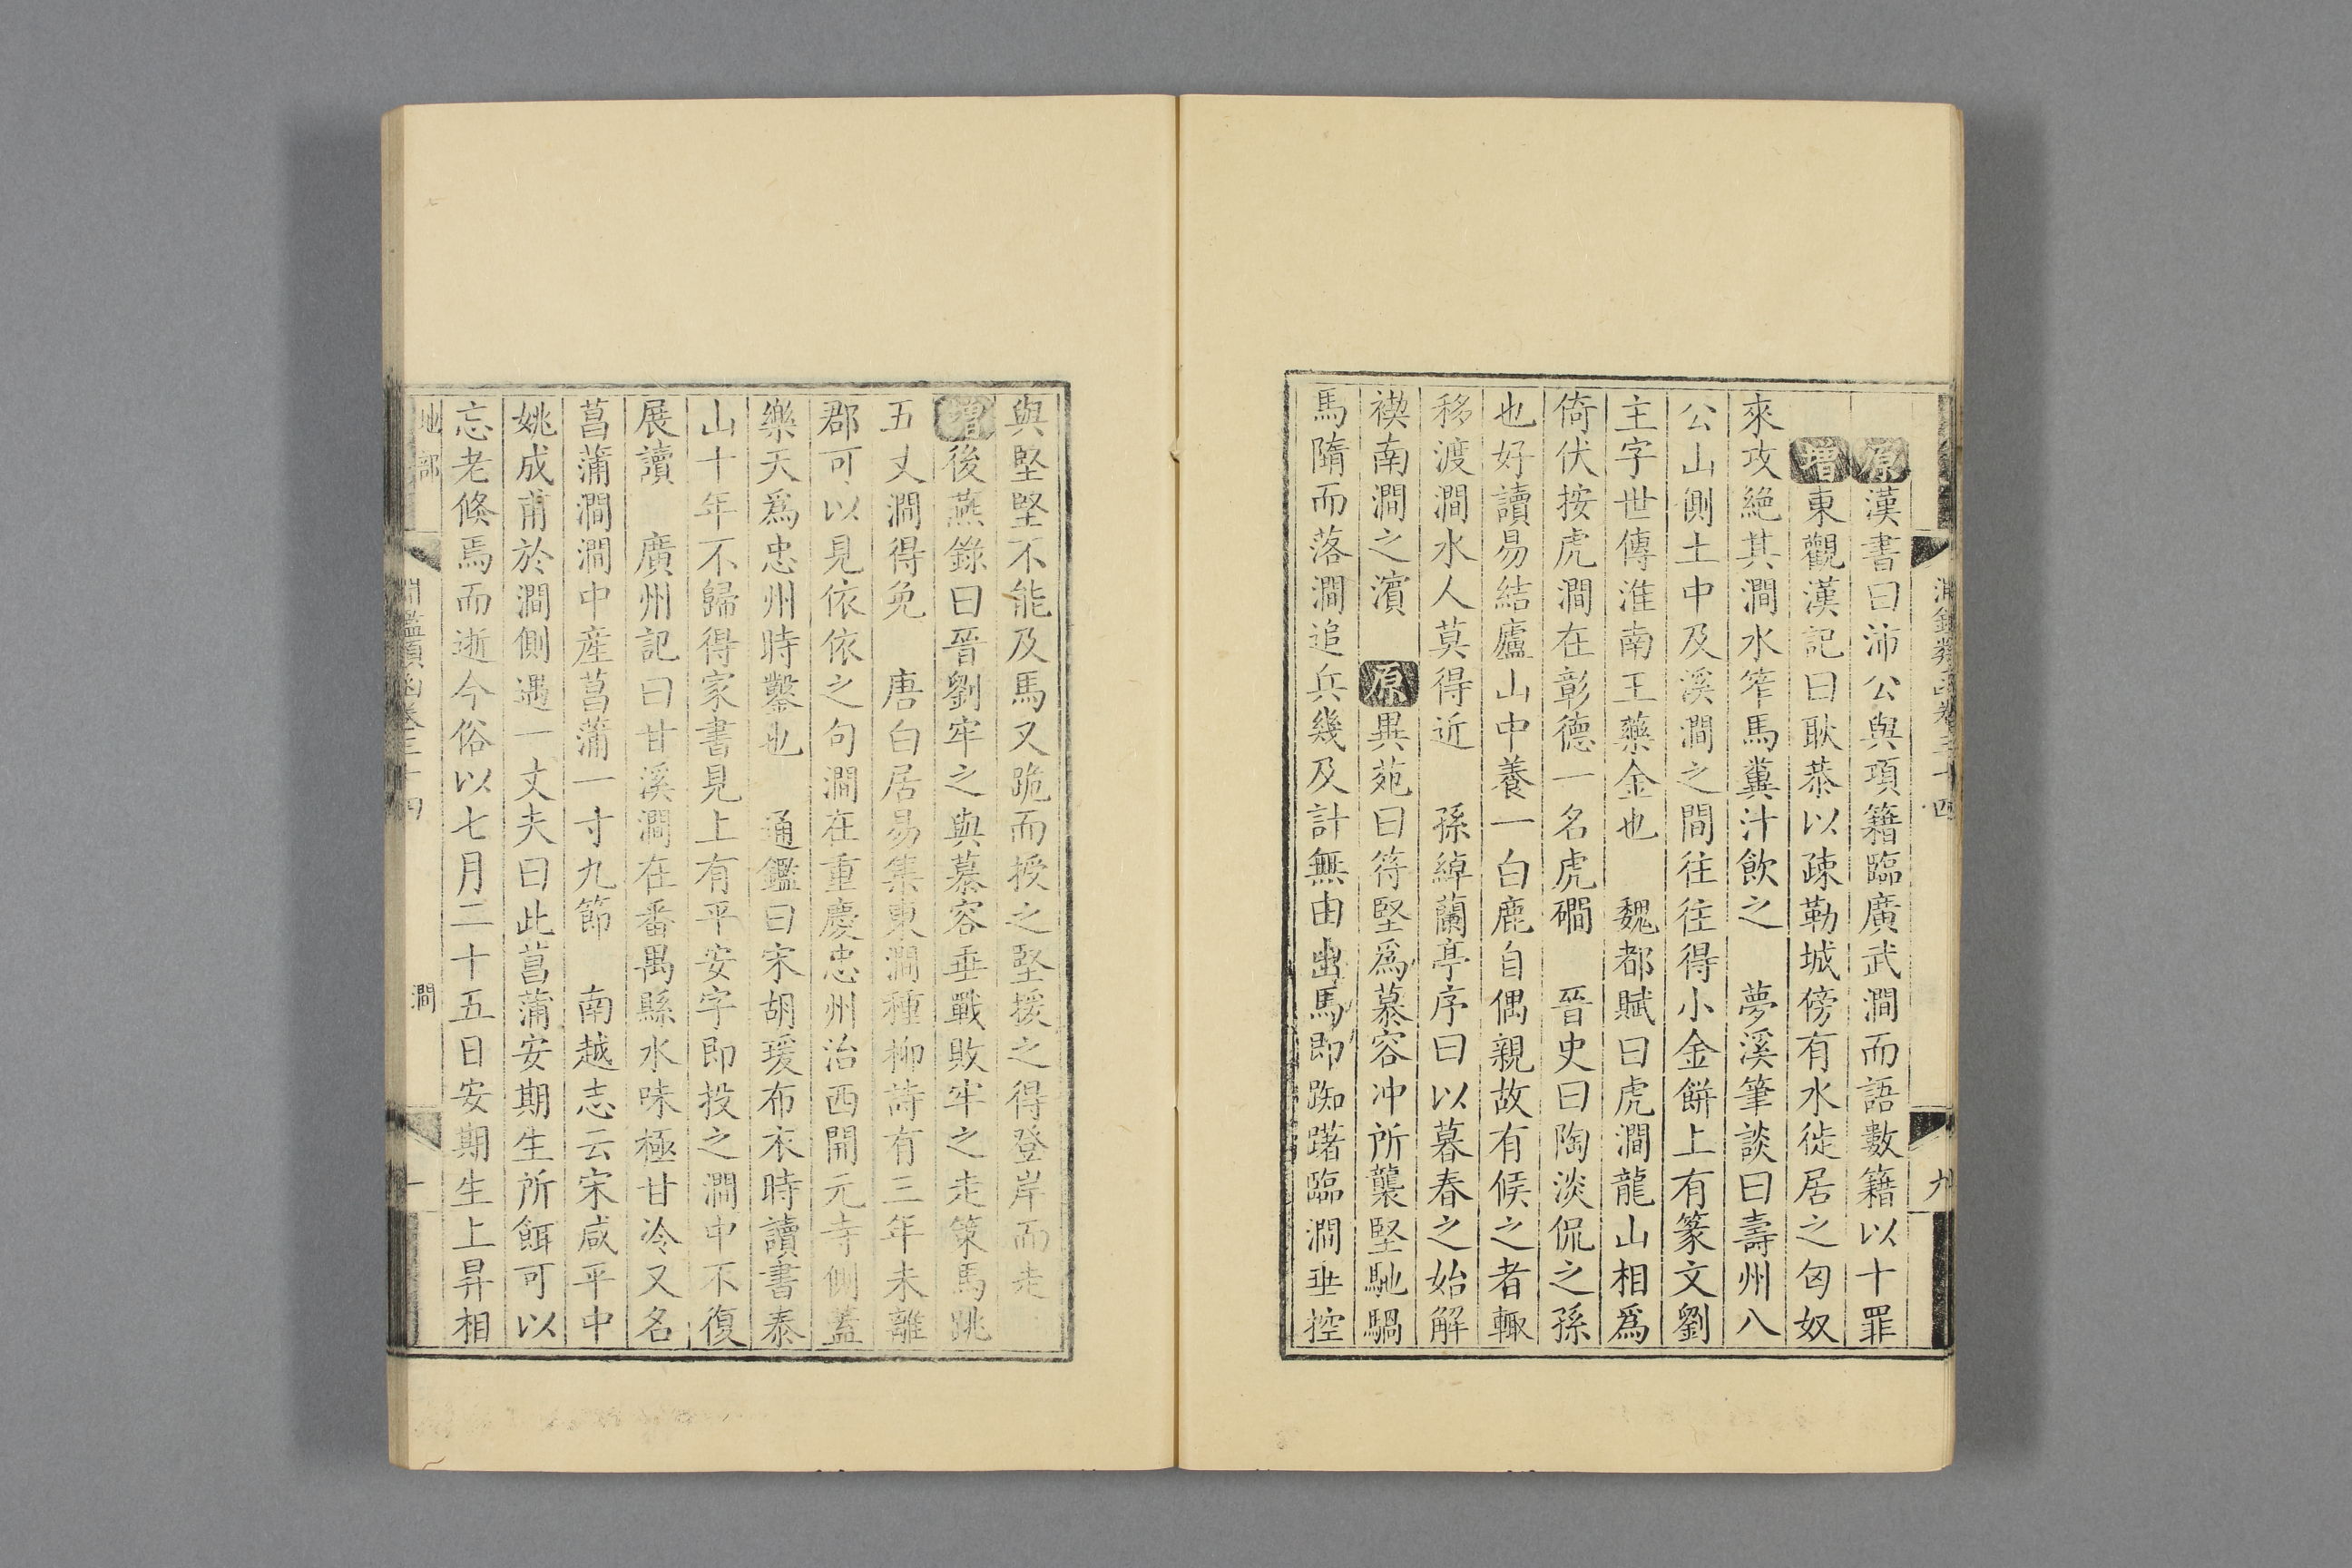 淵鑑類函卷三十四
九
原漢書曰沛公與項籍臨廣武澗而語數籍以十罪
增東觀漢記曰耿恭以疎勒城傍有水徙居之匈奴
來攻絶其澗水笮馬糞汁飲之　夢溪筆談曰壽州八
公山側土中及溪澗之間往往得小金餅上有篆文劉
主字世傳淮南王藥金也　魏都賦曰虎澗龍山相爲
倚伏按虎澗在彰德一名虎磵　晉史曰陶淡侃之孫
也好讀易結廬山中養一白鹿自偶親故有候之者輒
移渡澗水人莫得近　孫綽蘭亭序曰以暮春之始解
禊南澗之濱　原異苑曰符堅爲慕容冲所襲堅馳騧
馬隋而落澗追兵幾及計無由出馬即踟躇臨澗垂控
與堅堅不能及馬又跪而授之堅援之得登岸而走
增後燕錄曰晉劉牢之與慕容垂戰敗牢之走策馬跳
五丈澗得免　唐白居易集東澗種柳詩有三年未離
郡可以見依依之句澗在重慶忠州治西開元寺側蓋
樂天爲忠州時鑿也　通鑑曰宋胡瑗布衣時讀書泰
山十年不歸得家書見上有平安字即投之澗中不復
展讀　廣州記曰甘溪澗在番禺縣水味極甘冷又名
菖蒲澗澗中産菖蒲一寸九節　南越志云宋咸平中
姚成甫於澗側遇一丈夫曰此菖蒲安期生所餌可以
忘老倏焉而逝今俗以七月二十五日安期生上昇相
地部
淵鑑類函卷三十四
澗